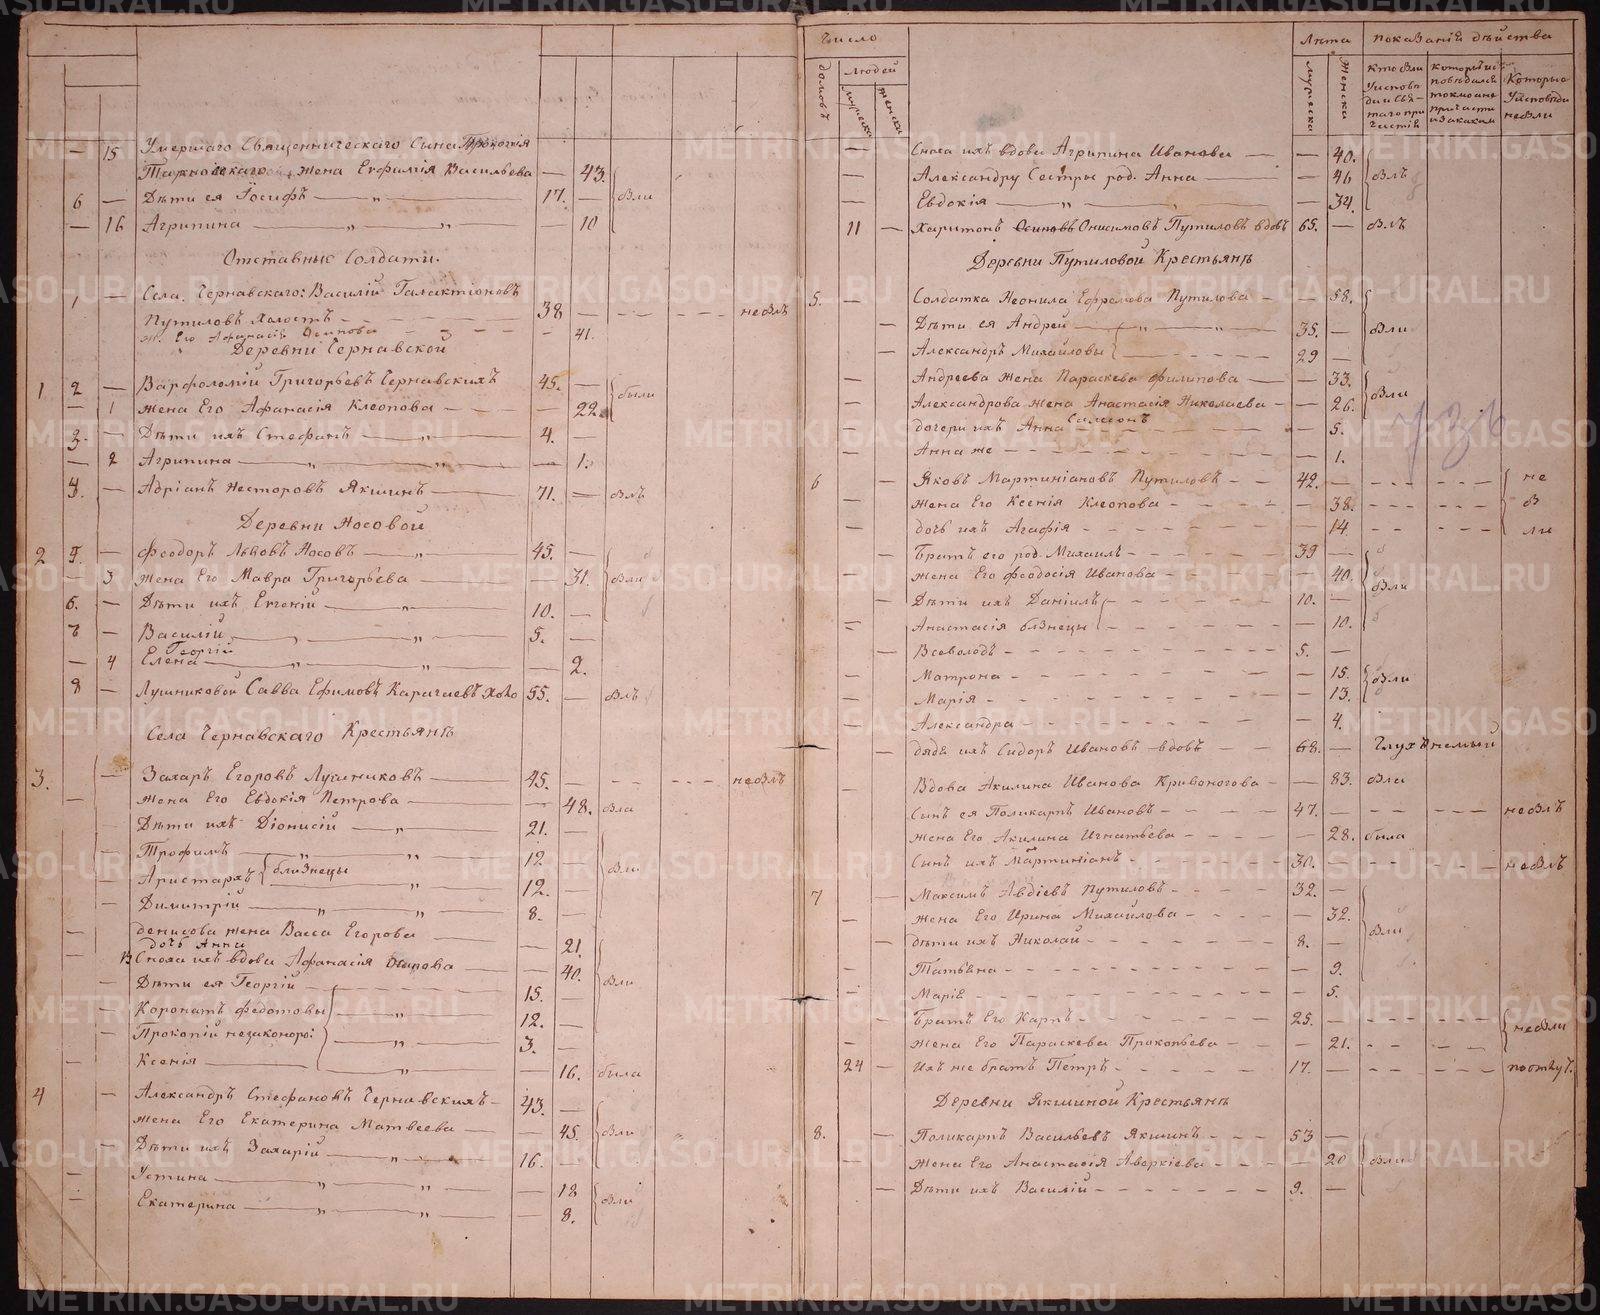 — 15 Умершаго Священническаго Сына Прокопія
Тарновскаго жена Евфимія Васильева — 43. бли
6 — Дѣти ея Іосифъ — „ — 17. —
— 16 Агрипина — „ — „ — 10
Отставные Солдаты.
1 — Села Чернавскаго: Василій Галактіоновъ
Путиловъ Холостъ — 38 — — — неблъ
ж. Его Афанасія Осипова — 41.
Деревни Чернавской
1 2 — Варфоломій Григорьевъ Чернавскихъ 45. — были
— 1 жена Его Афанасія Клеопова — — 22.
3. — Дѣти ихъ Стефанъ — „ — 4. —
— 2 Агрипина — „ — „ — 1.
4. — Адріанъ Несторовъ Якшинъ — 71. — блъ
Деревни Носовой
2 5. — Феодоръ Львовъ Носовъ — „ 45. —
— 3 жена Его Мавра Григорьева — — 31. бли
6. — Дѣти ихъ Евгеній — „ — 10. —
7 — Василій — „ — „ 5. —
Георгій
— 4 Елена — „ — „ — 2.
8 — Лушниковой Савва Ефимовъ Карачаевъ Холо 55. — блъ
Села Чернавскаго Крестьянъ
3. — Захаръ Егоровъ Лушниковъ — 45. — — — неблъ
— жена Его Евдокія Петрова — — 48. бла
— Дѣти ихъ Діонисій — „ — 21. —
— Трофимъ — „ — „ 12. — бли
— Аристархъ близнецы — „ 12. —
— Димитрій — „ — „ 8. —
— Денисова жена Васса Егорова — — 21.
дочь Анна
— Сноха ихъ вдова Афанасія Карпова — — 40. бли
— Дѣти ея Георгій — 15. —
— Коронатъ Федотовы — „ 12. —
— Прокопій незаконоро: — „ 3. —
— Ксенія — „ — 16. была
4 — Александръ Стефановъ Чернавскихъ — 43. —
— жена Его Екатерина Матвеева — — 45. бли
— Дѣти ихъ Захарій — „ — 16. —
— Устина — „ — „ — 18 бли
— Екатерина — „ — „ — 8.
Число Лѣта показаніе дѣйства
домовъ людей мужеска женска мужеска женска
Которые Уисповѣди небли
— Сноха ихъ вдова Агрипина Иванова — — 40.
— Александру Сестры род. Анна — — 46 блъ
— Евдокія — „ — „ — 34.
11 — Харитонъ Осиповъ Онисимовъ Путиловъ вдовъ 65. — блъ
Деревни Путиловой Крестьянъ
5. — Солдатка Неонила Ефремова Путилова — — 58.
— Дѣти ея Андрей — „ — „ 35. — бли
— Александръ Михайловы 29 —
— Андреева жена Параскева Филипова — — 33. бли
— Александрова жена Анастасія Николаева — — 26.
Симеонъ
— дочери ихъ Анна — 5.
— Анна же — — 1.
736
6 — Яковъ Мартиніановъ Путиловъ — 42. — — — не
— жена Его Ксенія Клеопова — — 38. — — б
— дочь ихъ Агафія — — 14 ли
— Братъ его род. Михаилъ — 39 —
— жена Его Феодосія Иванова — — 40. бли
— Дѣти ихъ Даніилъ — 10. —
— Анастасія близнецы — — 10.
— Всеволодъ — 5. —
— Матрона — — 15. бли
— Марія — — 13.
— Александра — — 4.
— дядя ихъ Сидоръ Ивановъ вдовъ — 68. — Глухъ немый
— Вдова Акилина Иванова Кривоногова — — 83. бла
Сынъ ея Поликарпъ Ивановъ — 47. — — — неблъ
жена Его Акилина Игнатьева — — 28. была
Сынъ ихъ Мартиніанъ — 30. — — — неблъ
7 — Максимъ Авдіевъ Путиловъ — 32. —
— жена Его Ирина Михайлова — — 32. бли
— Дѣти ихъ Николай — 8. —
— Татьяна — — 9.
— Марія — — 5.
— Братъ Его Карпъ — 25. — — — небли
— жена Его Параскева Прокопьева — — 21. — —
24 — Ихъ же братъ Петръ — 17. — — —
Деревни Якшиной Крестьянъ
8. — Поликарпъ Васильевъ Якшинъ — 53 —
— жена Его Анастасія Аверкіева — — 20 бли
— Дѣти ихъ Василій — 9. —
METRIKI.GASO-URAL.RU